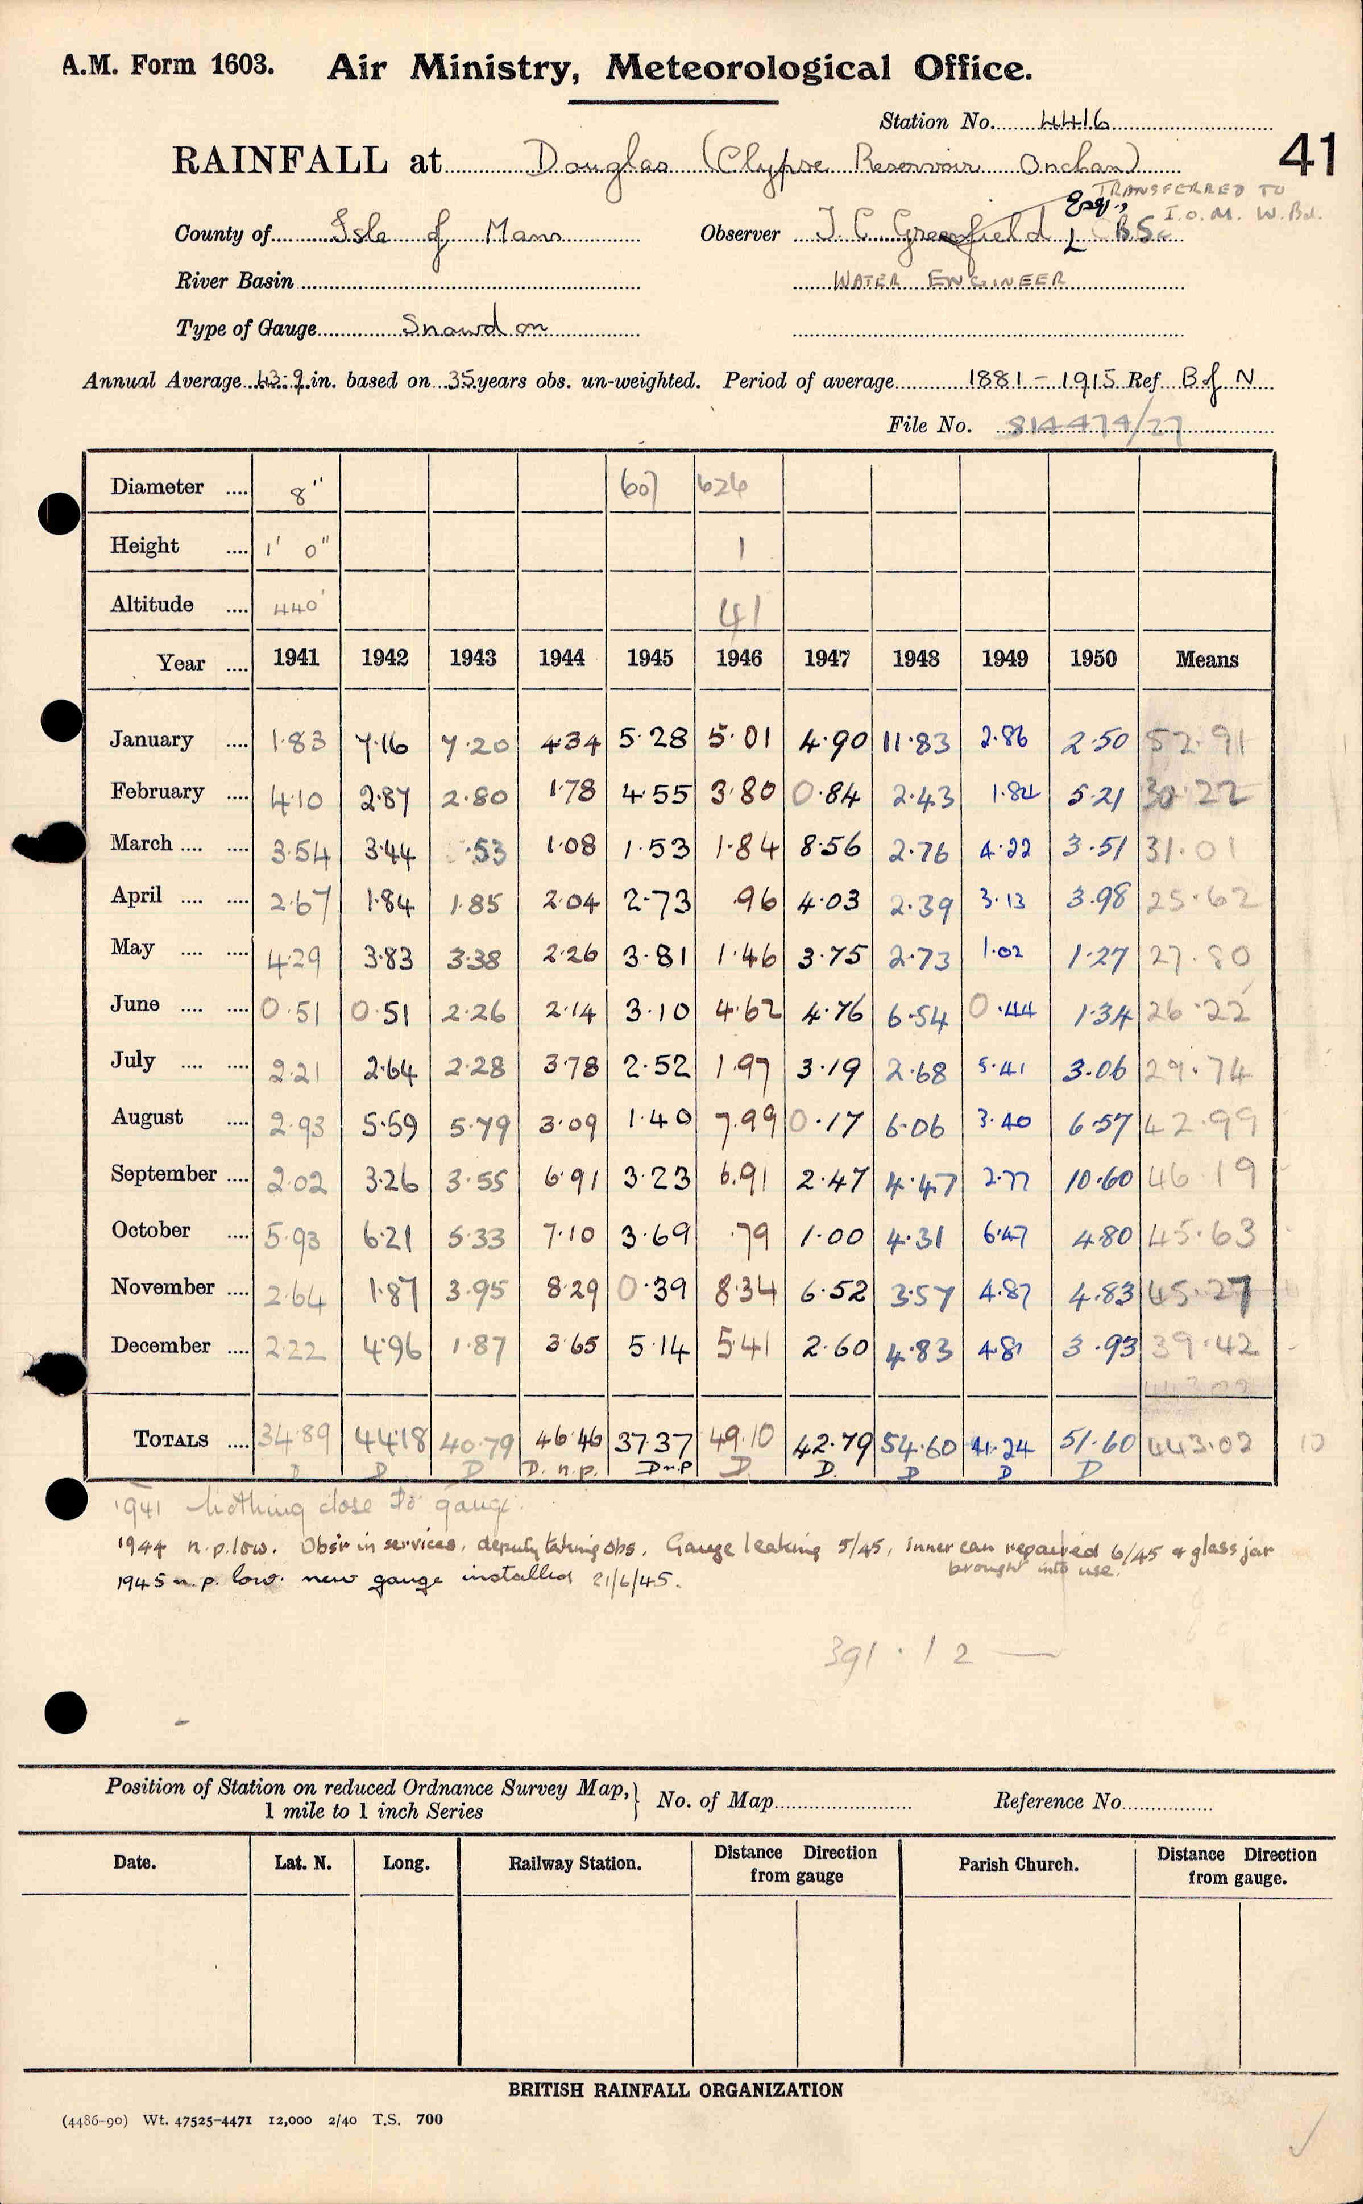 A.M. Form 1603. Air Ministry, Meteorological Office.
Station No. 4416
41
RAINFALL at Douglas (Clypse Reservoir Onchan)
TRANSFERRED TO
I.O.M. W.Bd.
County of Isle of Man Observer J. C. Greenfield Esq., B.Sc
River Basin WATER ENGINEER
Type of Gauge Snowdon
Annual Average 43.9 in. based on 35 years obs. un-weighted. Period of average 1881 - 1915 Ref B of N
File No. 814474/27
Diameter .... 8" 607 626
Height .... 1' 0" 1
Altitude .... 440' 41
Year .... 1941 1942 1943 1944 1945 1946 1947 1948 1949 1950 Means
January .... 1.83 7.16 7.20 4.34 5.28 5.01 4.90 11.83 2.86 2.50 52.91
February .... 4.10 2.87 2.80 1.78 4.55 3.80 0.84 2.43 1.84 5.21 30.22
March .... .... 3.54 3.44 .53 1.08 1.53 1.84 8.56 2.76 4.22 3.51 31.01
April .... .... 2.67 1.84 1.85 2.04 2.73 .96 4.03 2.39 3.13 3.98 25.62
May .... .... 4.29 3.83 3.38 2.26 3.81 1.46 3.75 2.73 1.02 1.27 27.80
June .... .... 0.51 0.51 2.26 2.14 3.10 4.62 4.76 6.54 0.44 1.34 26.22
July .... .... 2.21 2.64 2.28 3.78 2.52 1.97 3.19 2.68 5.41 3.06 29.74
August .... 2.93 5.59 5.79 3.09 1.40 7.99 0.17 6.06 3.40 6.57 42.99
September .... 2.02 3.26 3.55 6.91 3.23 6.91 2.47 4.47 2.77 10.60 46.19
October .... 5.93 6.21 5.33 7.10 3.69 .79 1.00 4.31 6.47 4.80 45.63
November .... 2.64 1.87 3.95 8.29 0.39 8.34 6.52 3.57 4.87 4.83 45.27
December .... 2.22 4.96 1.87 3.65 5.14 5.41 2.60 4.83 4.81 3.93 39.42
443.02
TOTALS .... 34.89 44.18 40.79 46.46 37.37 49.10 42.79 54.60 41.24 51.60 443.02 10
D D D D. n.p. D n.p D D. D D D
1941 Nothing close to gauge.
1944 n.p. low. Obsr in services, deputy taking obs. Gauge leaking 5/45, inner can repaired 6/45 & glass jar
brought into use.
1945 n.p. low. new gauge installed 21/6/45.
391.12
Position of Station on reduced Ordnance Survey Map,} No. of Map Reference No.
1 mile to 1 inch Series
Date. Lat. N. Long. Railway Station. Distance Direction from gauge Parish Church. Distance Direction from gauge.
BRITISH RAINFALL ORGANIZATION
(4486-90) Wt. 47525-4471 12,000 2/40 T.S. 700